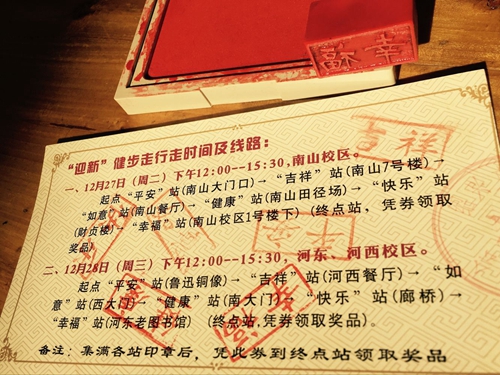 幸福
"迎新"健步走行走时间及线路：
一、12月27日（周二）下午12:00--15:30,南山校区。
起点"平安"站(南山大门口)→"吉祥"站(南山7号楼)→
"如意"站(南山餐厅)→"健康"站(南山田径场)→"快乐"站
(财贞楼)→"幸福"站(南山校区1号楼下)(终点站，凭券领取
奖品)
二、12月28日（周三）下午12:00--15:30，河东、河西校区。
起点"平安"站(鲁迅铜像)→"吉祥"站(河西餐厅)→"如
意"站(西大门)→"健康"站(南大门)→"快乐"站(廊桥)→
"幸福"站(河东老图书馆)(终点站,凭券领取奖品)。
备注：集满各站印章后，凭此券到终点站领取奖品
吉祥